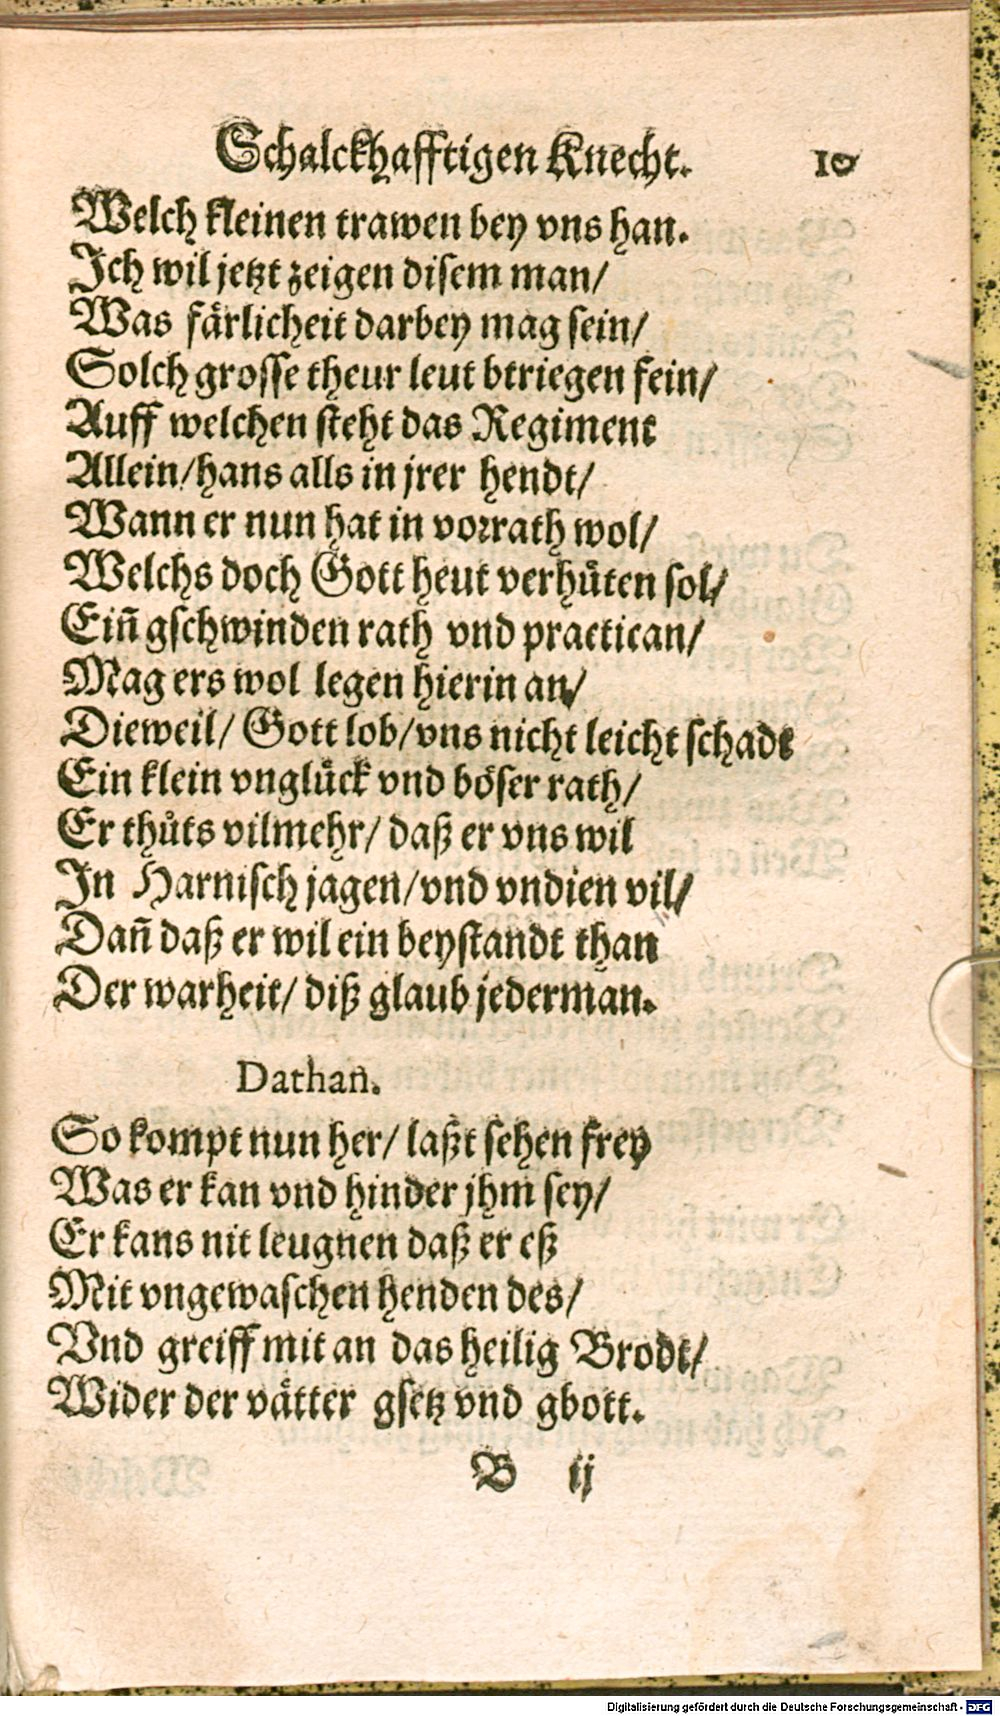 Schalckhafftigen Knecht. 10
Welch kleinen trawen bey vns han.
Ich wil jetzt zeigen disem man/
Was färlicheit darbey mag sein/
Solch grosse theur leut btriegen fein/
Auff welchen steht das Regiment
Allein/hans alls in jrer hendt/
Wann er nun hat in vorrath wol/
Welchs doch Gott heut verhüten sol/
Eiñ gschwinden rath vnd practican/
Mag ers wol legen hierin an/
Dieweil/ Gott lob/vns nicht leicht schadt
Ein klein vnglück vnd böser rath/
Er thůts vilmehr/ daß er vns wil
In Harnisch jagen/vnd vndien vil/
Dañ daß er wil ein beystandt than
Der warheit/ diß glaub jederman.
Dathan.
So kompt nun her/ laßt sehen frey
Was er kan vnd hinder jhm sey/
Er kans nit leugnen daß er eß
Mit vngewaschen henden des/
Vnd greiff mit an das heilig Brodt/
Wider der vätter gsetz vnd gbott.
B ij
Digitalisierung gefördert durch die Deutsche Forschungsgemeinschaft - DFG